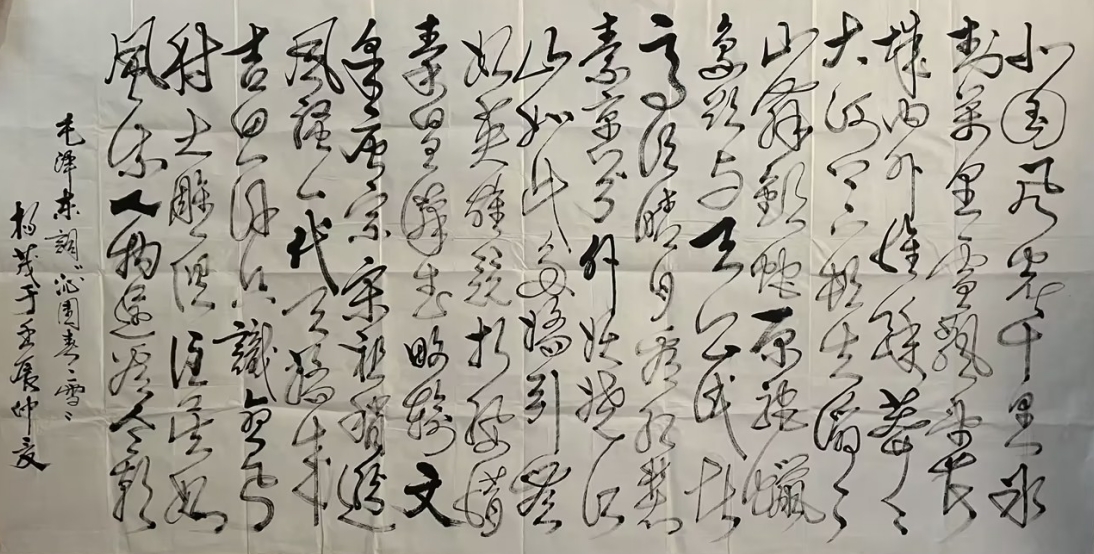 北国风光千里冰
封萬里雪飄望长
城内外惟餘莽々
大河上下顿失滔々
山舞銀蛇原驰蠟
象欲与天公试比
高須晴日看红装
素裹分外妖娆江
山如此多嬌引無
数英雄競折腰惜
秦皇漢武略输文
采唐宗宋祖稍遜
風骚一代天骄成
吉思汗只識弯弓
射大雕俱往矣数
風流人物還看今朝
毛泽东词沁园春雪
杨茂于壬辰仲夏